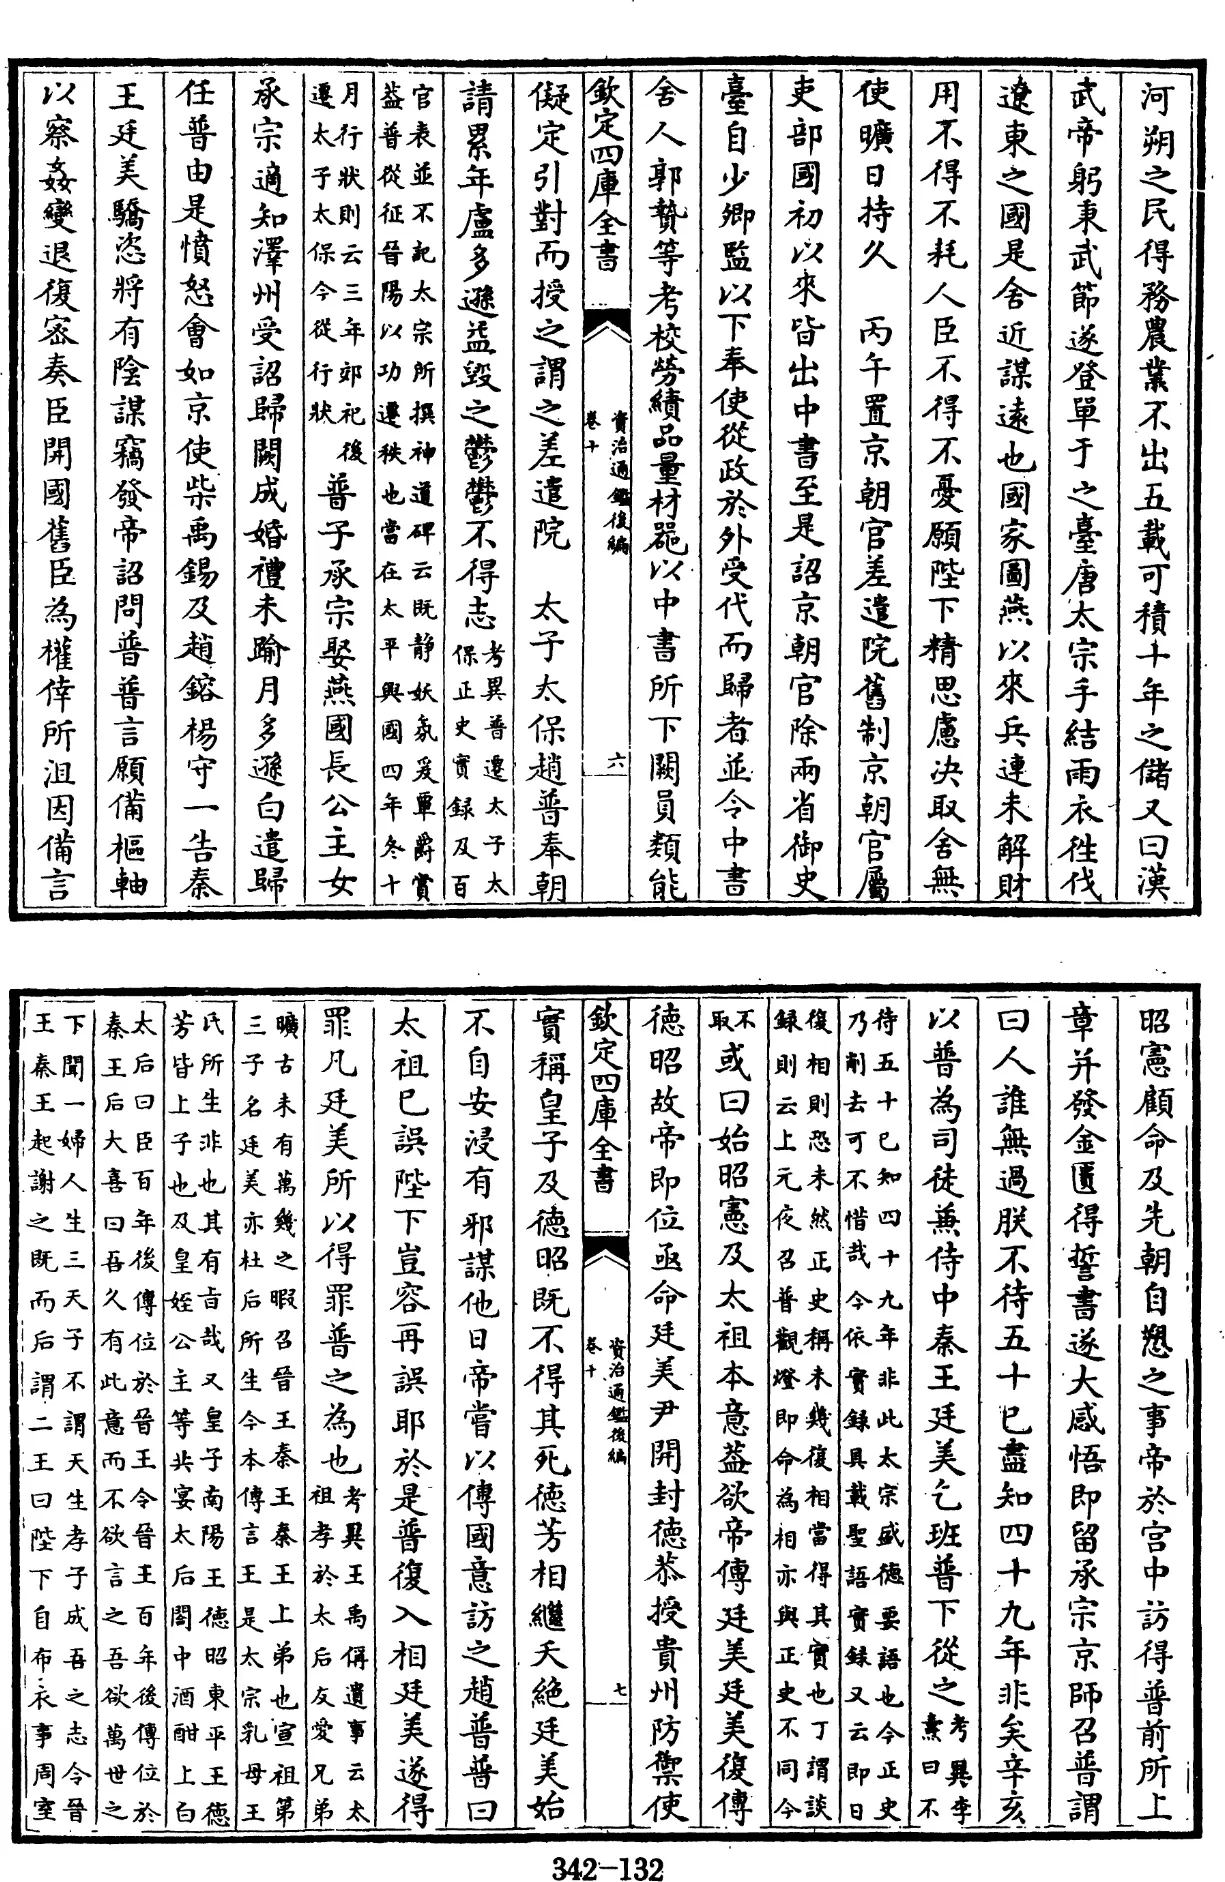 河朔之民得務農業不出五載可積十年之儲又曰漢
武帝躬秉武節遂登單于之臺唐太宗手結雨衣徃伐
遼東之國是舍近謀逺也國家圖燕以來兵連未解財
用不得不耗人臣不得不憂願陛下精思慮决取舍無
使曠日持久　丙午置京朝官差遣院舊制京朝官屬
吏部國初以來皆出中書至是詔京朝官除兩省御史
臺自少卿監以下奉使從政於外受代而歸者並令中書
舍人郭贄等考校勞績品量材器以中書所下闕員類能
欽定四庫全書
資治通鑑後編
卷十
六
儗定引對而授之謂之差遣院　太子太保趙普奉朝
請累年盧多遜益毁之鬱鬱不得志
考異普遷太子太
保正史實録及百
官表並不記太宗所撰神道碑云既静妖氛爰覃爵賞
葢普從征晉陽以功遷秩也當在太平興國四年冬十
月行狀則云三年郊祀後
遷太子太保今從行狀
普子承宗娶燕國長公主女
承宗適知澤州受詔歸闕成婚禮未踰月多遜白遣歸
任普由是憤怒會如京使柴禹錫及趙鎔楊守一告秦
王廷美驕恣將有陰謀竊發帝詔問普普言願備樞軸
以察姦變退復密奏臣開國舊臣為權倖所沮因備言
昭憲顧命及先朝自愬之事帝於宫中訪得普前所上
章并發金匱得誓書遂大感悟即留承宗京師召普謂
曰人誰無過朕不待五十已盡知四十九年非矣辛亥
以普為司徒兼侍中秦王廷美乞班普下從之
考異李
燾曰不
待五十已知四十九年非此太宗盛德要語也今正史
乃削去可不惜哉今依實録具載聖語實録又云即日
復相則恐未然正史稱未幾復相當得其實也丁謂談
録則云上元夜召普觀燈即命為相亦與正史不同今
不
取
或曰始昭憲及太祖本意葢欲帝傳廷美廷美復傳
德昭故帝即位亟命廷美尹開封德恭授貴州防禦使
欽定四庫全書
資治通鑑後編
卷十
七
實稱皇子及德昭既不得其死德芳相繼夭絶廷美始
不自安浸有邪謀他日帝嘗以傳國意訪之趙普普曰
太祖已誤陛下豈容再誤耶於是普復入相廷美遂得
罪凡廷美所以得罪普之為也
考異王禹偁遺事云太
祖孝於太后友愛兄弟
曠古未有萬幾之暇召晉王秦王秦王上弟也宣祖第
三子名廷美亦杜后所生今本傳言王是太宗乳母王
氏所生非也其有旨哉又皇子南陽王德昭東平王德
芳皆上子也及皇姪公主等共宴太后閤中酒酣上白
太后曰臣百年後傳位於晉王令晉王百年後傳位於
秦王后大喜曰吾久有此意而不欲言之吾欲萬世之
下聞一婦人生三天子不謂天生孝子成吾之志令晉
王秦王起謝之既而后謂二王曰陛下自布衣事周室
342-132